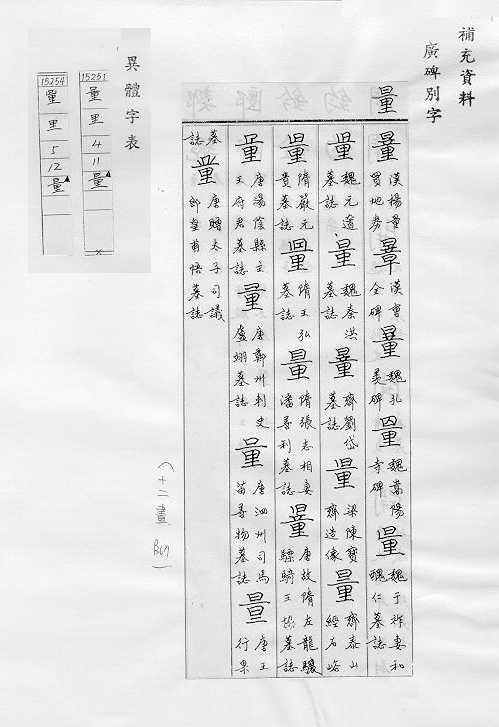 補充資料
廣碑別字
量
量 漢楊量買地券 量 漢曹全碑 量 魏孔羨碑 量 魏嵩陽寺碑 量 魏于祚妻和醜仁墓誌
量 魏元遥墓誌 量 魏秦洪墓誌 量 齊劉岱墓誌 量 梁陳寶齊造像 量 齊泰山經石峪
量 隋嚴元貴墓誌 量 隋王弘墓誌 量 隋張志相妻潘善利墓誌 量 唐故隋左龍驤驃騎王協墓誌
量 唐湯陰縣主王府君墓誌 量 唐鄭州刺史盧翊墓誌 量 唐泗州司馬苗善物墓誌 量 唐王行果
墓誌 量 唐贈太子司議郎皇甫悟墓誌
(十二畫)
異體字表
15251
量
里
4
11
量
15254
里
5
12
量